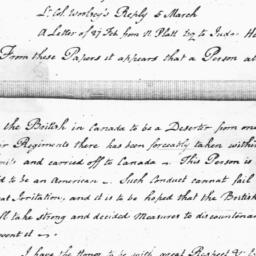 Lt. Col. Worsley's Reply 5 March
A Letter of 27 Feb from N. Platt Esq to Judge
From these Papers it appears that a Person at
the British in Canada to be a Deserter from one
Regiments there has been forceably taken within
and carried off to Canada — This Person is
to be an American — Such Conduct cannot fail
Irritation, and it is to be hoped that the British
take strong and decided Measures to discountenan
it —
I have the Honor to be with great Respect &